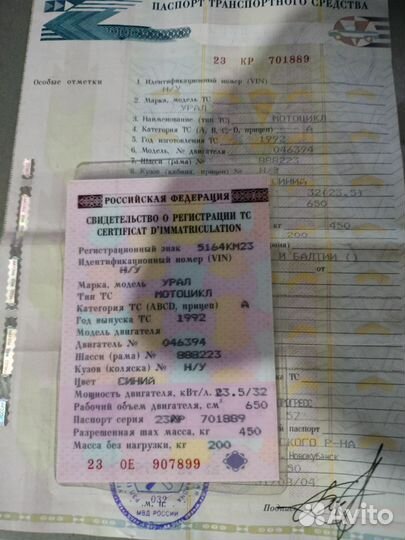 ПАСПОРТ ТРАНСПОРТНОГО СРЕДСТВА
23 КР 701889
Особые отметки
1. Идентификационный номер (VIN)
Н/У
2. Марка, модель ТС
УРАЛ
3. Наименование (тип ТС) МОТОЦИКЛ
4. Категория ТС (A, B, C, D, прицеп) А
5. Год изготовления ТС 1992
6. Модель, № двигателя
046394
7. Шасси (рама) № 888223
8. Кузов (кабина, прицеп) № Н/У
СИНИЙ
32(23.5)
650
450
200
И БАЛТИИ ()
от
РОССИЙСКАЯ ФЕДЕРАЦИЯ
СВИДЕТЕЛЬСТВО О РЕГИСТРАЦИИ ТС
CERTIFICAT D'IMMATRICULATION
Регистрационный знак 5164КМ23
Идентификационный номер (VIN)
Н/У
Марка, модель УРАЛ
Тип ТС МОТОЦИКЛ
Категория ТС (ABCD, прицеп) А
Год выпуска ТС 1992
Модель двигателя
Двигатель № 046394
Шасси (рама) № 888223
Кузов (коляска) № Н/У
Цвет СИНИЙ
Мощность двигателя, кВт/л. 23.5/32
Рабочий объем двигателя, см³ 650
Паспорт серия 23КР 701889
Разрешенная max масса, кг 450
Масса без нагрузки, кг 200
23 ОЕ 907899
ТС
57
паспорт
СКОГО Р-НА
Новокубанск
50
08/04
032
М. П.
МВД РОССИИ
Avito